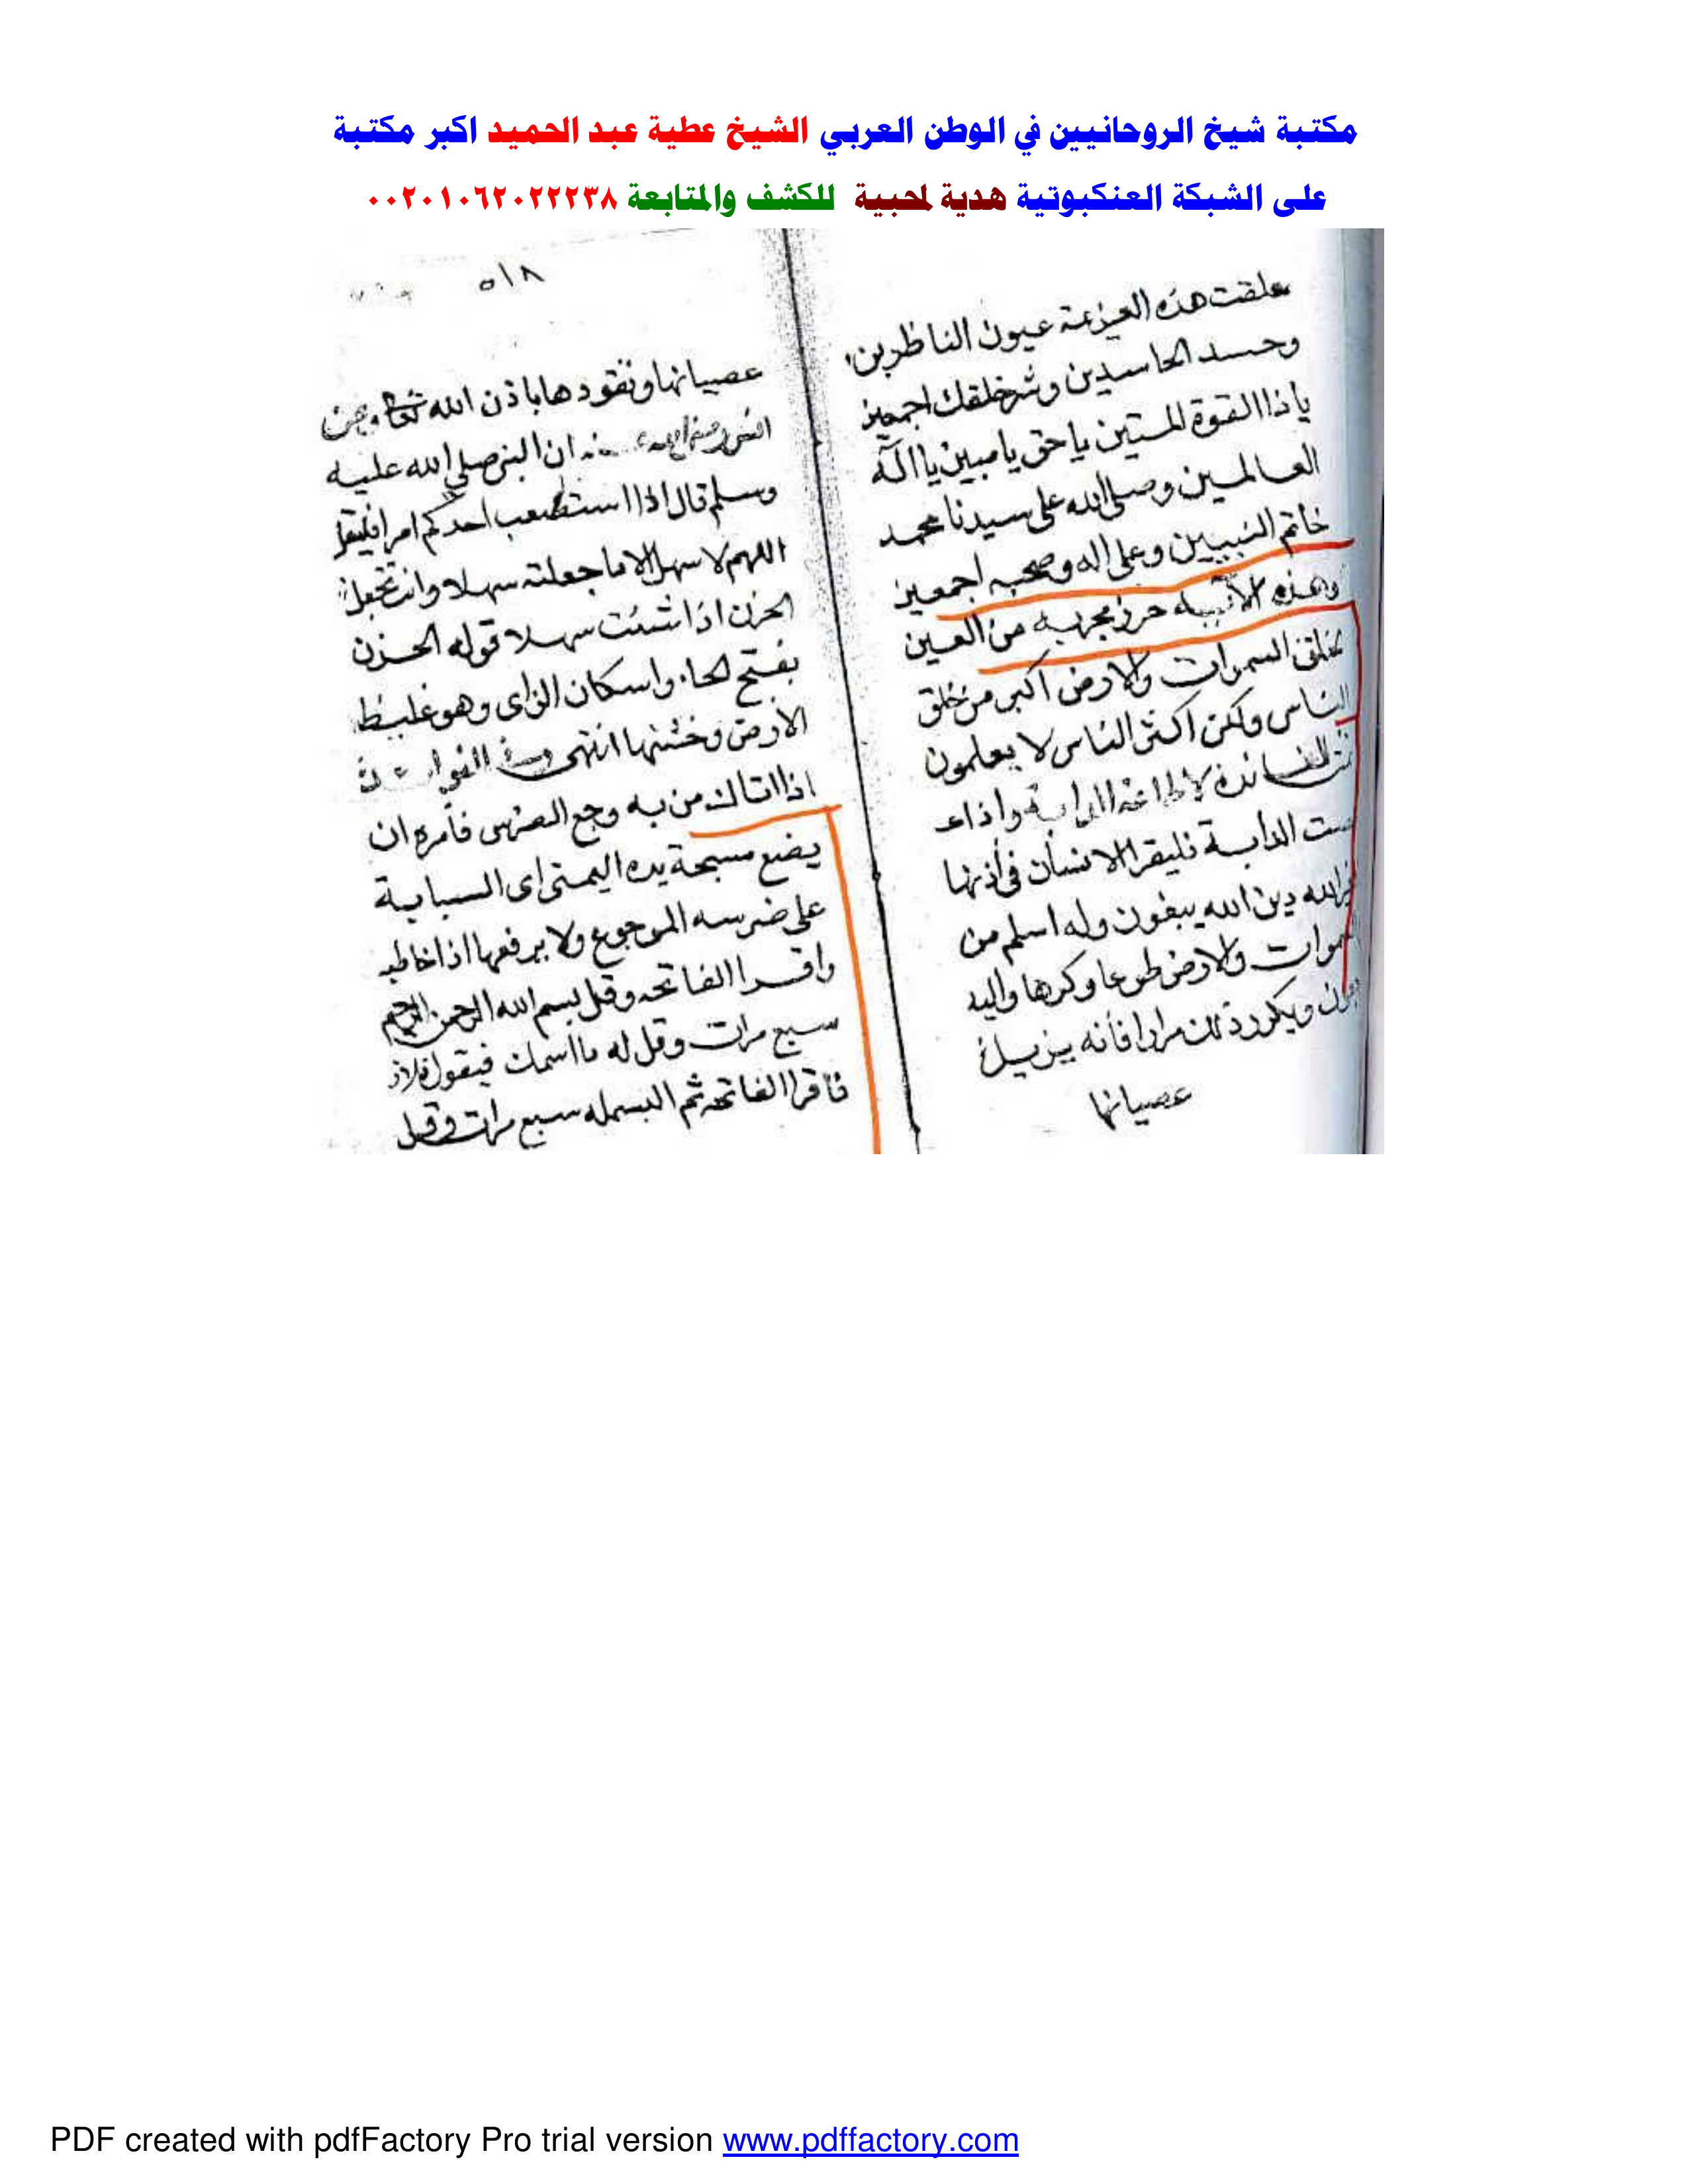 مكتبة شيخ الروحانيين في الوطن العربي الشيخ عطية عبد الحميد اكبر مكتبة
على الشبكة العنكبوتية هدية لمحبية للكشف والمتابعة ٠٠٢٠١٠٦٢٠٢٢٢٣٨
علقت هذه العزيمة عيون الناظرين
وحسد الحاسدين وشر خلقك اجمعين
يا ذا القوة المتين يا حق يا مبين يا اله
العالمين وصلى الله على سيدنا محمد
خاتم النبيين وعلى اله وصحبه اجمعين
وهذه الآتيه حرز مجربه من العين
لخلق السموات والارض اكبر من خلق
الناس ولكن اكثر الناس لا يعلمون
لاطاعة الدابة واذا
الدابة فليقرا الانسان فى أذنها
دين الله يبغون وله اسلم من
والارض طوعا وكرها واليه
ويكرر ذلك مرارا فأنه يزيل
عصيانها
٥١٨
عصيانها ونقودها باذن الله تعالى وعن
ان النبى صلى الله عليه
وسلم قال اذا استصعب احدكم امر فليقل
اللهم لا سهل الا ما جعلته سهلا وانت تجعل
الحزن اذا شئت سهلا قوله الحزن
بفتح الحاء واسكان الزاى وهو غليظ
الأرض وخشنها انتهى
اذا اتاك من به وجع الضرس فأمره ان
يضع مسبحة يده اليمنى اى السبابة
على ضرسه الموجوع ولا يرفعها اذا خاطبه
واقرا الفاتحه وقل بسم الله الرحمن الرحيم
سبع مرات وقل له ما اسمك فيقول فلان
فاقرا الفاتحه ثم البسمله سبع مرات وقل
PDF created with pdfFactory Pro trial version www.pdffactory.com